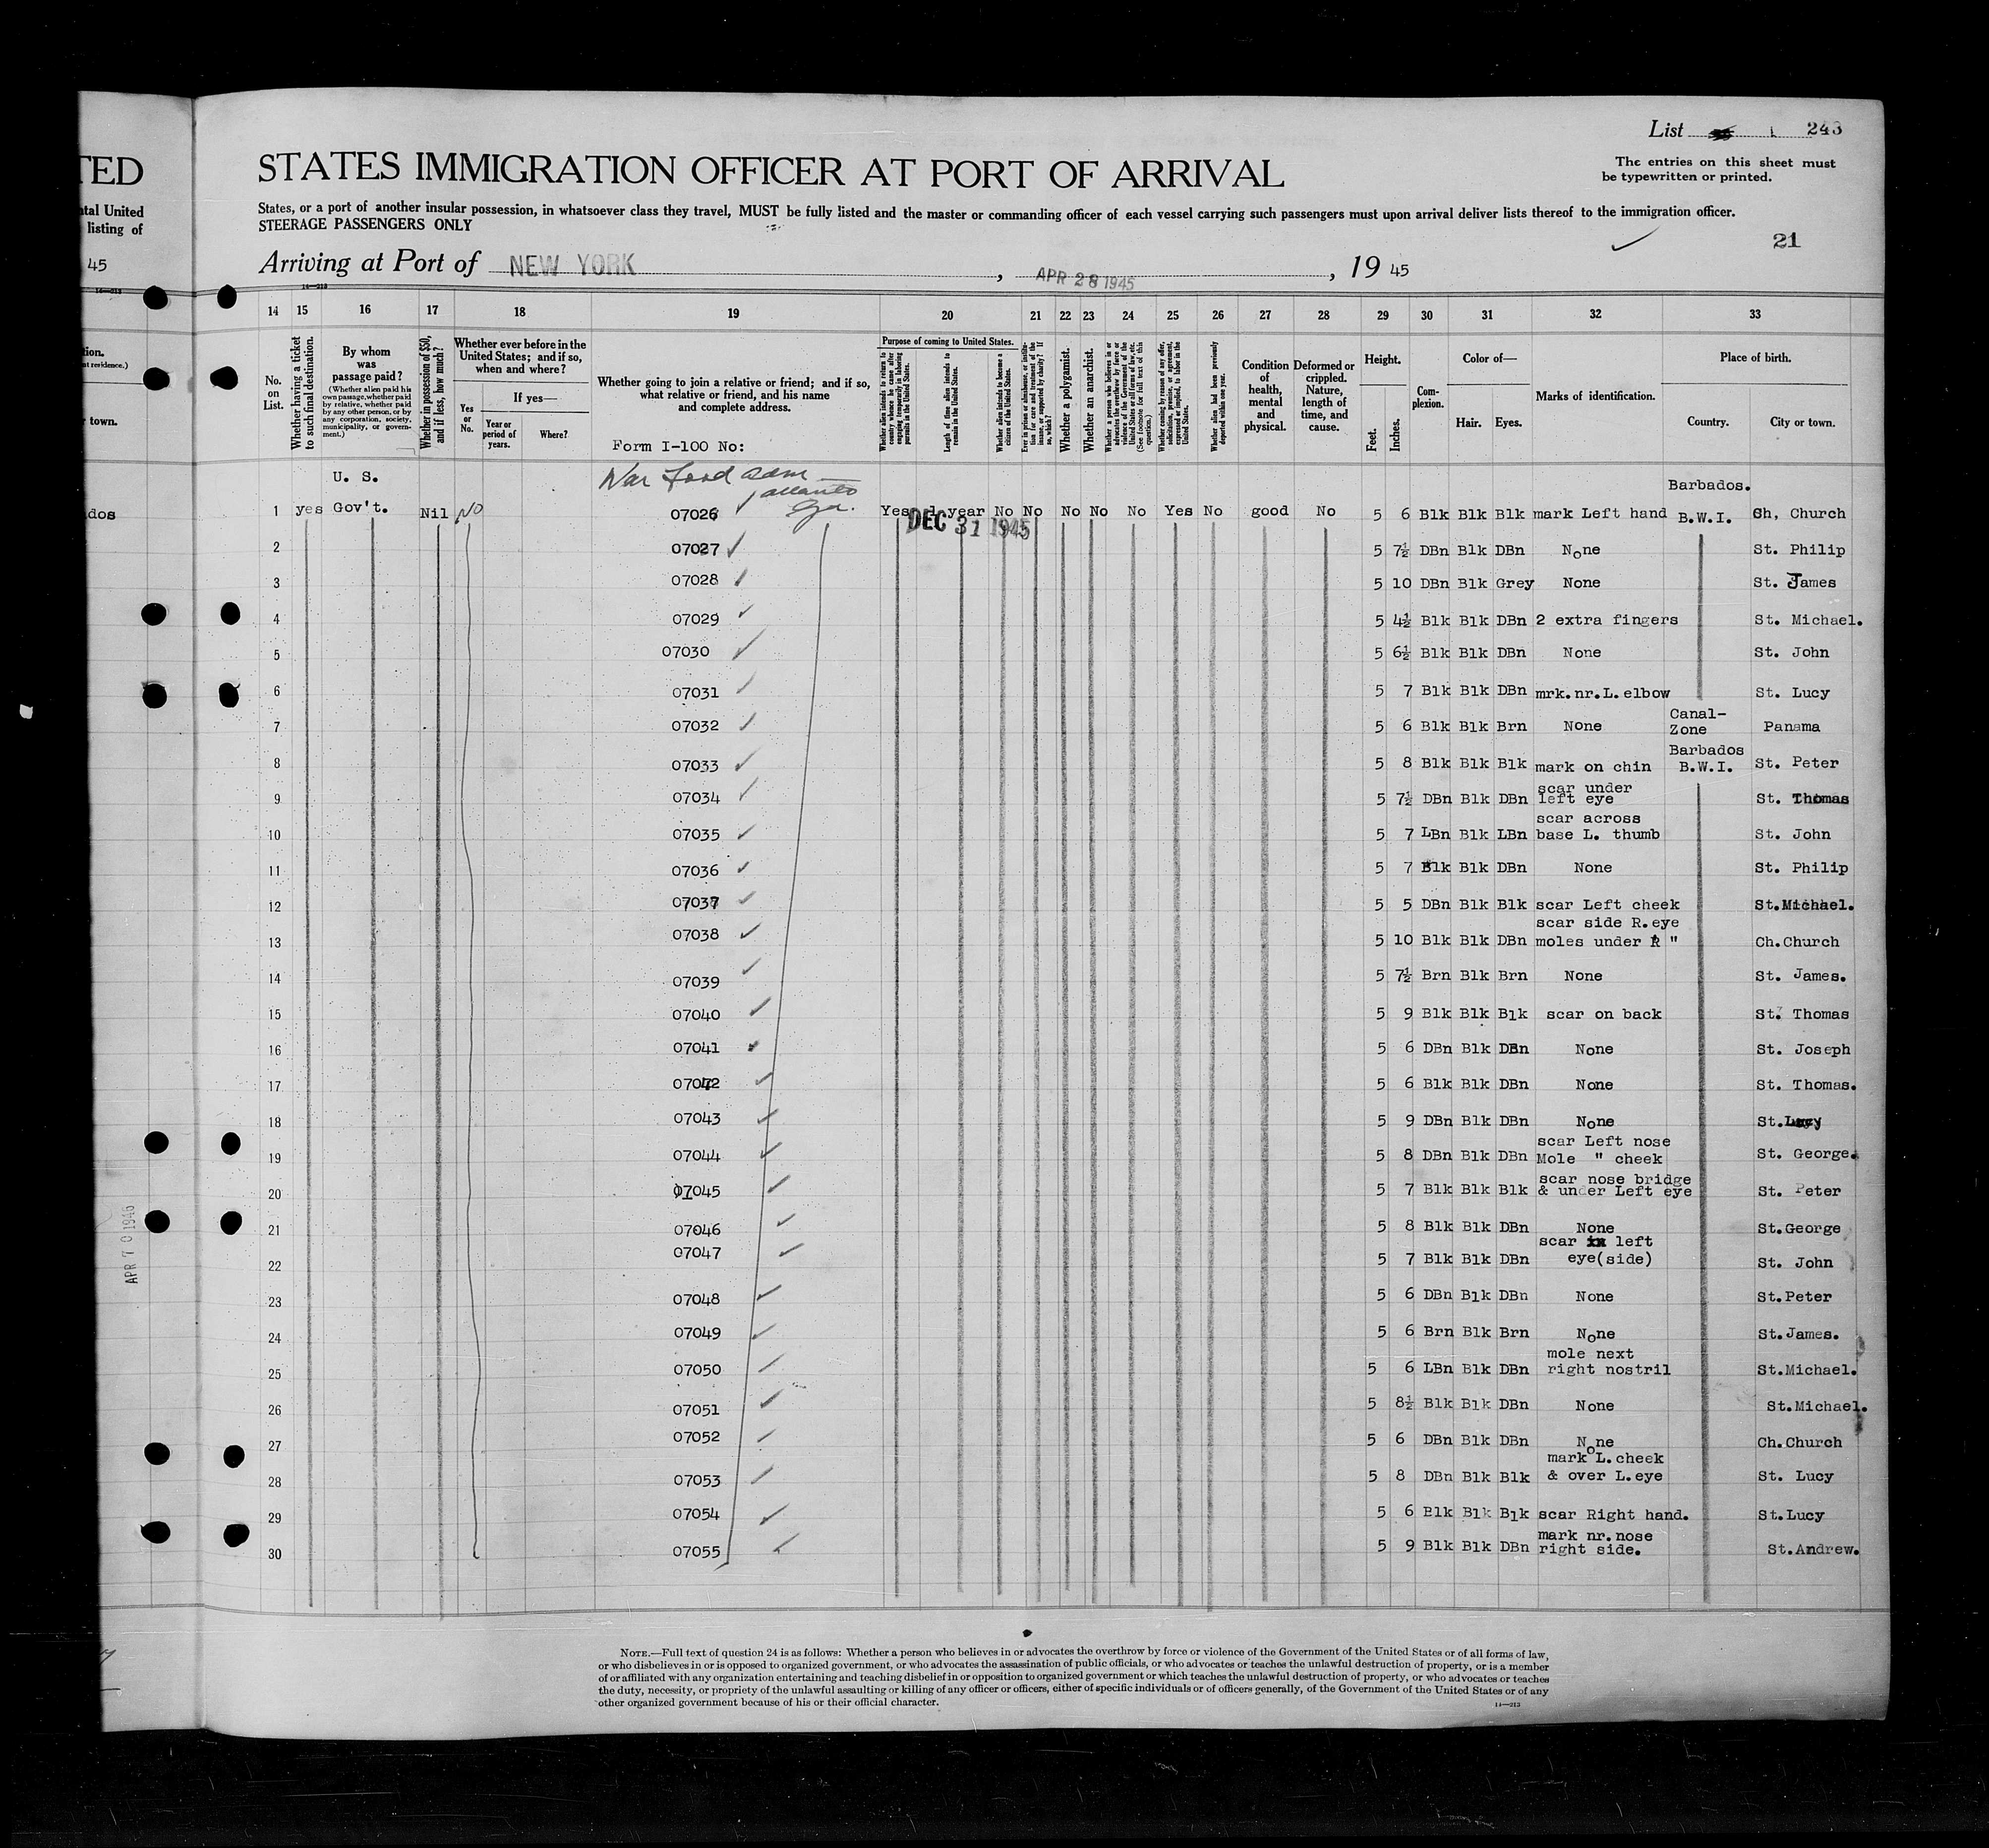 List 1 243
The entries on this sheet must
be typewritten or printed.
TED
STATES IMMIGRATION OFFICER AT PORT OF ARRIVAL
ntal United
listing of
States, or a port of another insular possession, in whatsoever class they travel, MUST be fully listed and the master or commanding officer of each vessel carrying such passengers must upon arrival deliver lists thereof to the immigration officer.
STEERAGE PASSENGERS ONLY
21
45
Arriving at Port of NEW YORK, APR 28 1945, 19 45
16—213
14 15 16 17 18 19 20 21 22 23 24 25 26 27 28 29 30 31 32 33
No. on List.
Whether having a ticket to such final destination.
By whom was passage paid?
(Whether alien paid his own passage, whether paid by relative, whether paid by any other person, or by any corporation, society, municipality, or government.)
Whether in possession of $50, and if less, how much?
Whether ever before in the United States; and if so, when and where?
Yes or No.
If yes—
Year or period of years.
Where?
Whether going to join a relative or friend; and if so, what relative or friend, and his name and complete address.
Form I-100 No:
Purpose of coming to United States.
Whether alien intends to return to country whence he came after engaging temporarily in laboring pursuits in the United States.
Length of time alien intends to remain in the United States.
Whether alien intends to become a citizen of the United States.
Ever in prison or almshouse, or institution for care and treatment of the insane, or supported by charity? If so, which?
Whether a polygamist.
Whether an anarchist.
Whether a person who believes in or advocates the overthrow by force or violence of the Government of the United States or all forms of law, etc. (See footnote for full text of this question.)
Whether coming by reason of any offer, solicitation, promise, or agreement, expressed or implied, to labor in the United States.
Whether alien had been previously deported within one year.
Condition of health, mental and physical.
Deformed or crippled. Nature, length of time, and cause.
Height.
Feet. Inches.
Complexion.
Color of—
Hair. Eyes.
Marks of identification.
Place of birth.
Country. City or town.
War Food Adm
Atlanta
Ga.
U. S.
Barbados.
dos
1 yes Gov't. Nil NO 07026 Yes 1 year No No No No No Yes No good No 5 6 Blk Blk Blk mark Left hand B.W.I. Ch, Church
DEC 31 1945
2 07027 5 7½ DBn Blk DBn None St. Philip
3 07028 5 10 DBn Blk Grey None St. James
4 07029 5 4½ Blk Blk DBn 2 extra fingers St. Michael.
5 07030 5 6½ Blk Blk DBn None St. John
6 07031 5 7 Blk Blk DBn mrk.nr.L.elbow St. Lucy
7 07032 5 6 Blk Blk Brn None Canal-Zone Panama
8 07033 5 8 Blk Blk Blk mark on chin Barbados B.W.I. St. Peter
9 07034 5 7½ DBn Blk DBn scar under left eye St. Thomas
10 07035 5 7 LBn Blk LBn scar across base L. thumb St. John
11 07036 5 7 Blk Blk DBn None St. Philip
12 07037 5 5 DBn Blk Blk scar Left cheek St.Michael.
13 07038 5 10 Blk Blk DBn scar side R.eye moles under R " Ch.Church
14 07039 5 7½ Brn Blk Brn None St. James.
15 07040 5 9 Blk Blk Blk scar on back St. Thomas
16 07041 5 6 DBn Blk DBn None St. Joseph
17 07042 5 6 Blk Blk DBn None St. Thomas.
18 07043 5 9 DBn Blk DBn None St.Lucy
19 07044 5 8 DBn Blk DBn scar Left nose Mole " cheek St. George.
20 07045 5 7 Blk Blk Blk scar nose bridge & under Left eye St. Peter
21 07046 5 8 Blk Blk DBn None St.George
22 07047 5 7 Blk Blk DBn scar left eye(side) St. John
23 07048 5 6 DBn Blk DBn None St.Peter
24 07049 5 6 Brn Blk Brn None St.James.
25 07050 5 6 LBn Blk DBn mole next right nostril St.Michael.
26 07051 5 8½ Blk Blk DBn None St.Michael.
27 07052 5 6 DBn Blk DBn None Ch.Church
28 07053 5 8 DBn Blk Blk mark L.cheek & over L.eye St. Lucy
29 07054 5 6 Blk Blk Blk scar Right hand. St.Lucy
30 07055 5 9 Blk Blk DBn mark nr.nose right side. St.Andrew.
NOTE.—Full text of question 24 is as follows: Whether a person who believes in or advocates the overthrow by force or violence of the Government of the United States or of all forms of law,
or who disbelieves in or is opposed to organized government, or who advocates the assassination of public officials, or who advocates or teaches the unlawful destruction of property, or is a member
of or affiliated with any organization entertaining and teaching disbelief in or opposition to organized government or which teaches the unlawful destruction of property, or who advocates or teaches
the duty, necessity, or propriety of the unlawful assaulting or killing of any officer or officers, either of specific individuals or of officers generally, of the Government of the United States or of any
other organized government because of his or their official character.